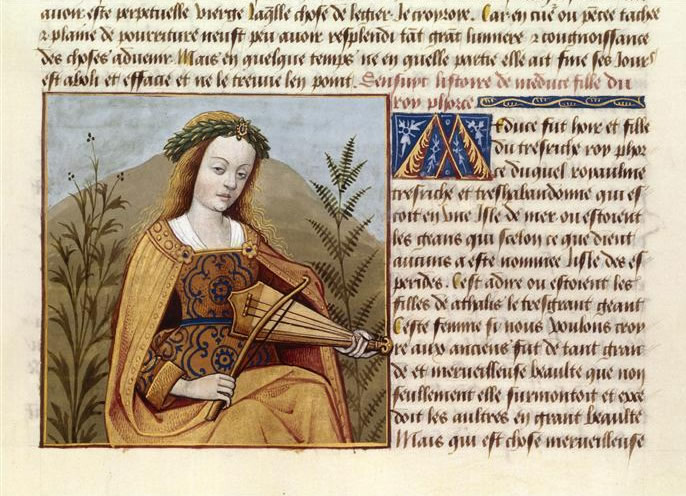 avoir este perpetuelle vierge laqlle chose de legier Je croyroye. Car en cue ou pecee tachee
& plaine de pourriture neust peu avoir resplendi tāt grāt lumiere & cougnoissance
des choses advenir Mais en quelque temps ne en quelle partie elle ait fine ses Jours
est aboli et effacie et ne le treuve len point. Sensuit listoire de meduce fille du
roy phorce
Meduce fut hoir et fille
du tresriche roy phor
ce duquel royaulme
tresriche et treshabandonne qui es
toit en une Isle de mer ou estoient
les geans qui scelon ce que dient
aucuns a este nommee lisle des es
perides. Cest adire ou estoient les
filles de athalis le tresgrant geant
Ceste femme si nous voulons croy
re aux anciens fut de tant gran
de et merveilleuse beaulte que non
seullement elle surmontoit et exce
doit les aultres en grant beaulte
Mais qui est chose merveilleuse